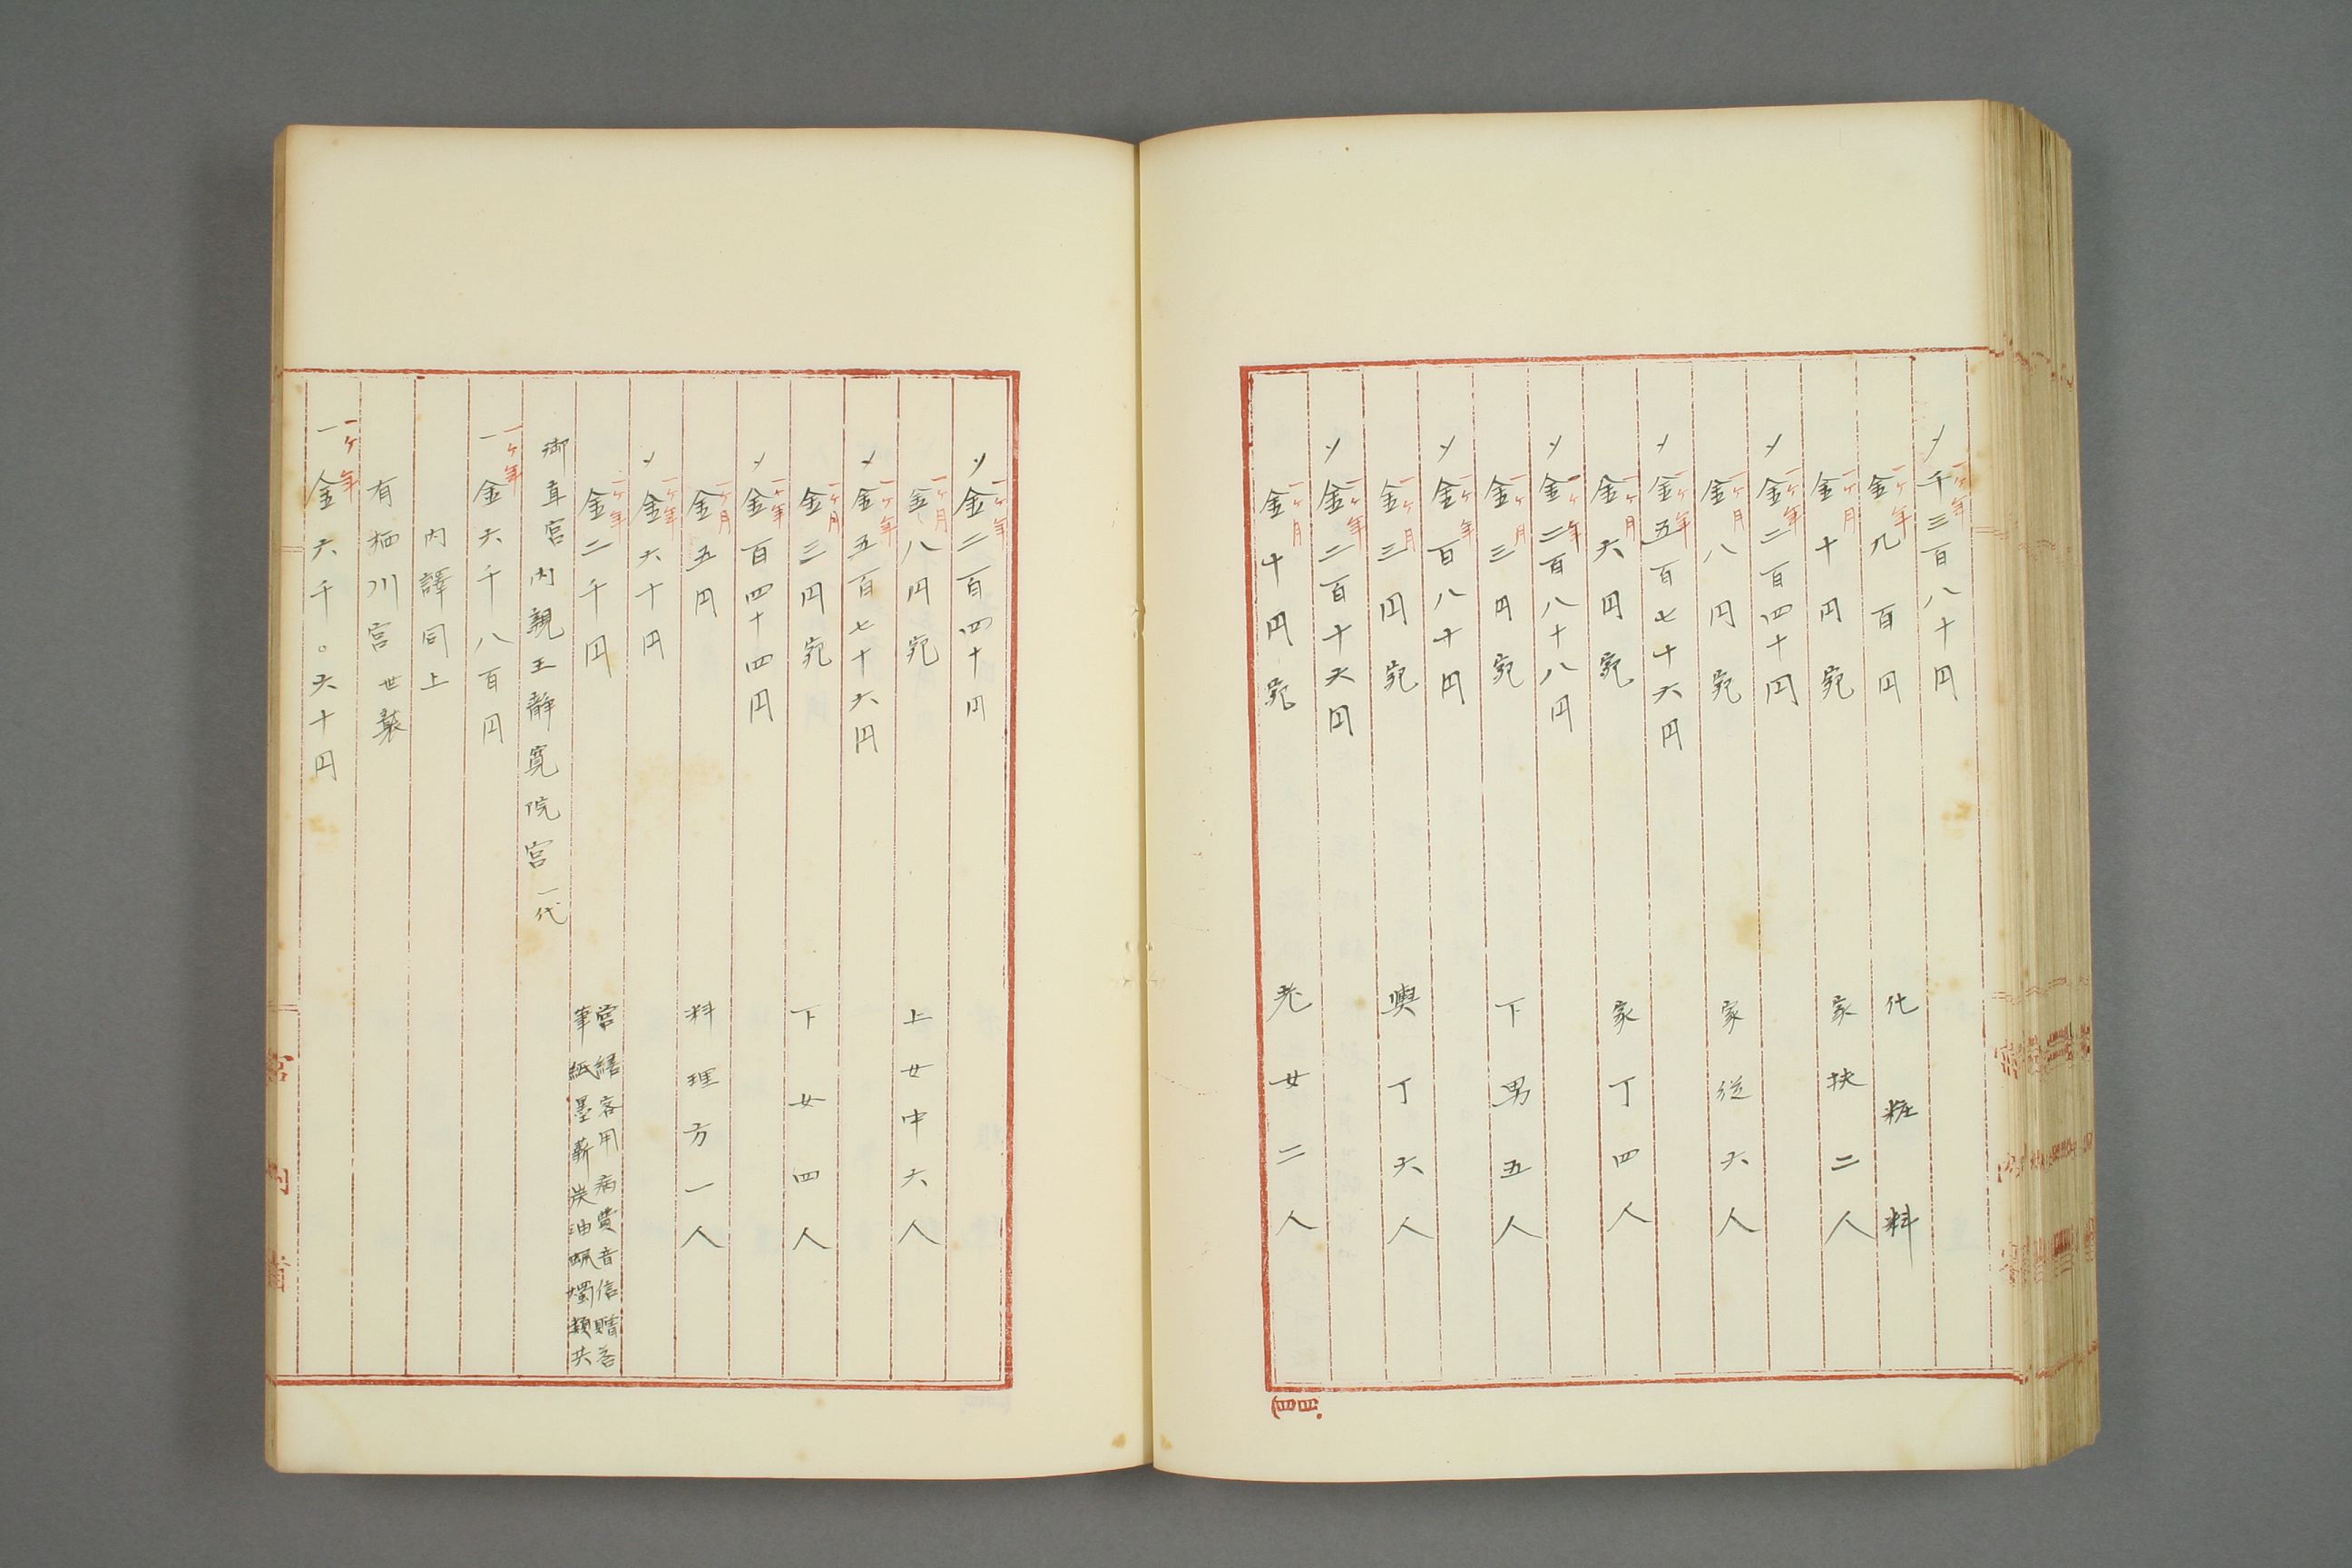 〆一ケ年千三百八十円
一ケ年金九百円 化粧料
一ケ月金十円宛 家扶二人
〆一ケ年金二百四十円
一ケ月金八円宛 家従六人
〆一ケ年金五百七十六円
一ケ月金六円宛 家丁四人
〆一ケ年金二百八十八円
一ケ月金三円宛 下男五人
〆一ケ年金百八十円
一ケ月金三円宛 輿丁六人
〆一ケ年金二百十六円
一ケ月金十円宛 老女二人
(四四)
〆一ケ年金二百四十円
一ケ月金八円宛 上女中六人
〆一ケ年金五百七十六円
一ケ月金三円宛 下女四人
〆一ケ年金百四十四円
一ケ月金五円 料理方一人
〆一ケ年金六十円
一ケ年金二千円 営繕客用病費音信贈答
筆紙墨薪炭油蝋燭類共
御直宮内親王静寛院宮一代
一一ケ年金六千八百円
内譯同上
有栖川宮世襲
一一ケ年金六千〇六十円
宮内省